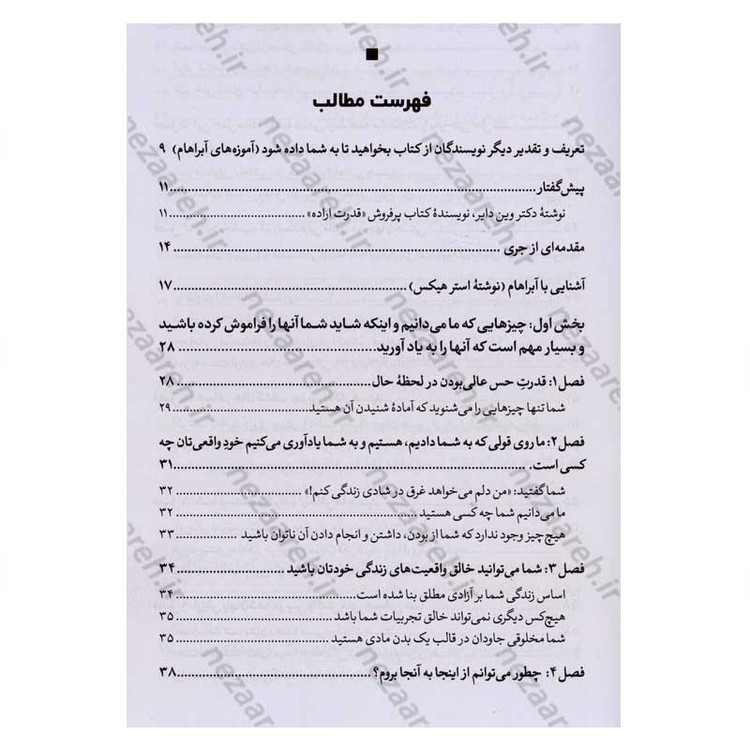 فهرست مطالب
تعریف و تقدیر دیگر نویسندگان از کتاب بخواهید تا به شما داده شود (آموزه‌های آبراهام) ۹
پیش‌گفتار ۱۱
نوشتهٔ دکتر وین دایر، نویسندهٔ کتاب پرفروش «قدرت اراده» ۱۱
مقدمه‌ای از جری ۱۴
آشنایی با آبراهام (نوشتهٔ استر هیکس) ۱۷
بخش اول: چیزهایی که ما می‌دانیم و اینکه شاید شما آنها را فراموش کرده باشید
و بسیار مهم است که آنها را به یاد آورید ۲۸
فصل ۱: قدرتِ حس عالی‌بودن در لحظهٔ حال ۲۸
شما تنها چیزهایی را می‌شنوید که آمادهٔ شنیدن آن هستید ۲۹
فصل ۲: ما روی قولی که به شما دادیم، هستیم و به شما یادآوری می‌کنیم خودِ واقعی‌تان چه
کسی است. ۳۱
شما گفتید: «من دلم می‌خواهد غرق در شادی زندگی کنم!» ۳۲
ما می‌دانیم شما چه کسی هستید ۳۲
هیچ‌چیز وجود ندارد که شما از بودن، داشتن و انجام دادن آن ناتوان باشید ۳۳
فصل ۳: شما می‌توانید خالق واقعیت‌های زندگی خودتان باشید ۳۴
اساس زندگی شما بر آزادی مطلق بنا شده است ۳۴
هیچ‌کس دیگری نمی‌تواند خالق تجربیات شما باشد ۳۵
شما مخلوقی جاودان در قالب یک بدن مادی هستید ۳۵
فصل ۴: چطور می‌توانم از اینجا به آنجا بروم؟ ۳۸
nezaareh.ir